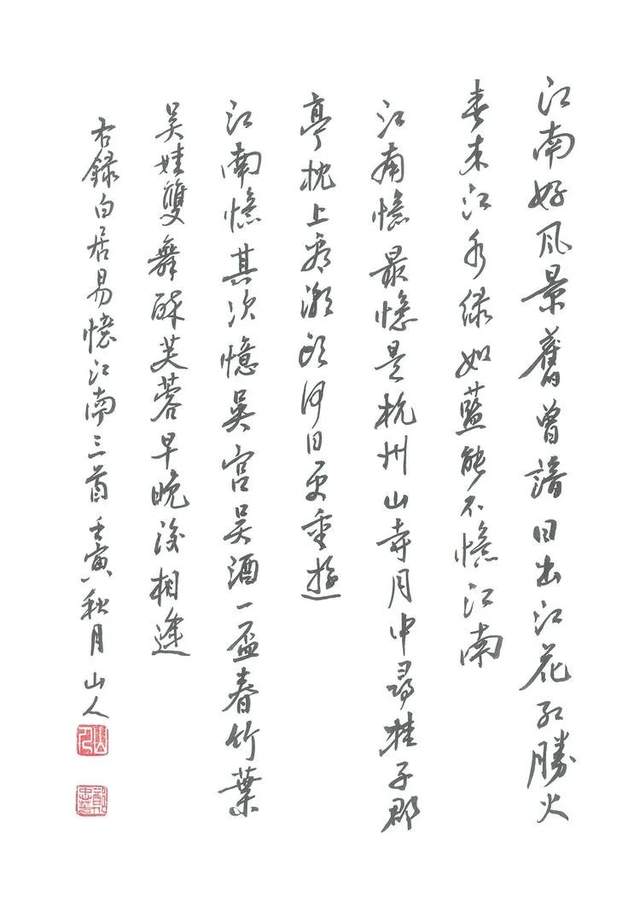 江南好风景舊曾諳日出江花红勝火
春来江水绿如藍能不憶江南
江南憶最憶是杭州山寺月中尋桂子郡
亭枕上看潮头何日更重遊
江南憶其次憶吴宫吴酒一盃春竹葉
吴娃雙舞酔芙蓉早晚復相逢
右録白居易憶江南三首壬寅秋月山人